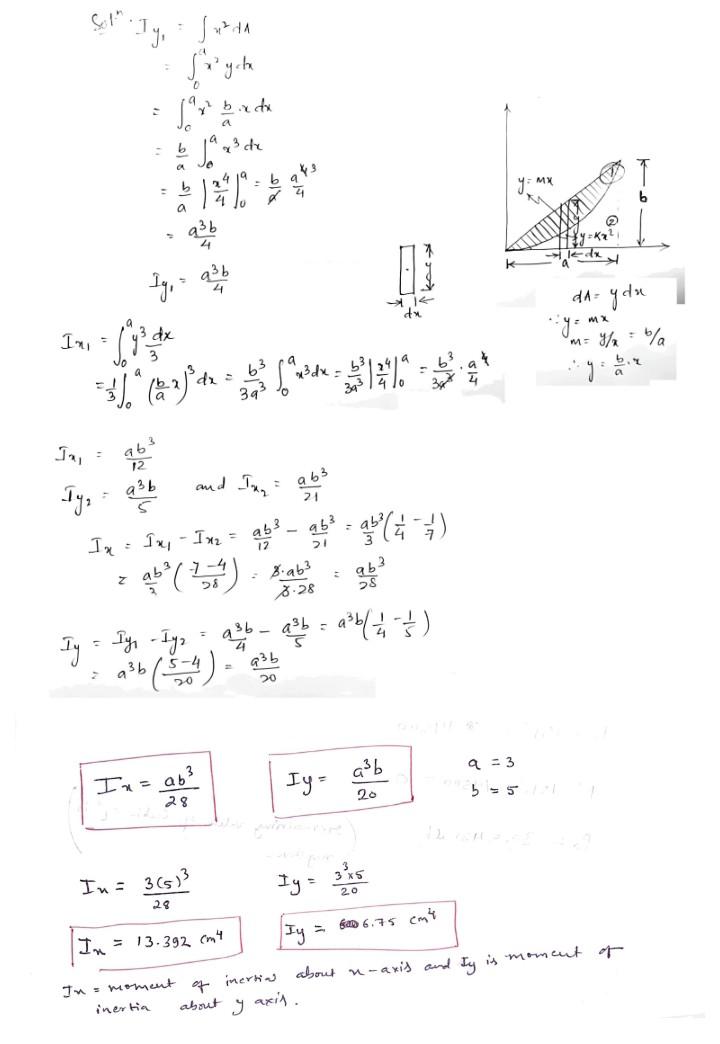 Solⁿ. Iy₁ = ∫x²dA
= ∫₀ᵃ x² y dx
= ∫₀ᵃ x² b/a · x dx
= b/a ∫₀ᵃ x³ dx
= b/a |x⁴/4|₀ᵃ = b/a a⁴³/4
= a³b/4
Iy₁ = a³b/4
y = mx
①
b
②
y = Kx²
dx
a
y
dx
dA = y dx
∵ y = mx
m = y/x = b/a
∴ y = b/a · x
Ix₁ = ∫₀ᵃ y³ dx/3
= 1/3 ∫₀ᵃ (b/a x)³ dx = b³/3a³ ∫₀ᵃ x³dx = b³/3a³ |x⁴/4|₀ᵃ = b³/3a³ · a⁴/4
Ix₁ = ab³/12
Iy₂ = a³b/5 and Ix₂ = ab³/21
Ix = Ix₁ - Ix₂ = ab³/12 - ab³/21 = ab³/3 (1/4 - 1/7)
= ab³/3 (7-4/28) = 3·ab³/3·28 = ab³/28
Iy = Iy₁ - Iy₂ = a³b/4 - a³b/5 = a³b(1/4 - 1/5)
= a³b (5-4/20) = a³b/20
Ix = ab³/28 Iy = a³b/20 a = 3
b = 5
Ix = 3(5)³/28 Iy = 3³x5/20
Ix = 13.392 cm⁴ Iy = 6.75 cm⁴
Ix = moment of inertia about x-axis and Iy is moment of
inertia about y axis.